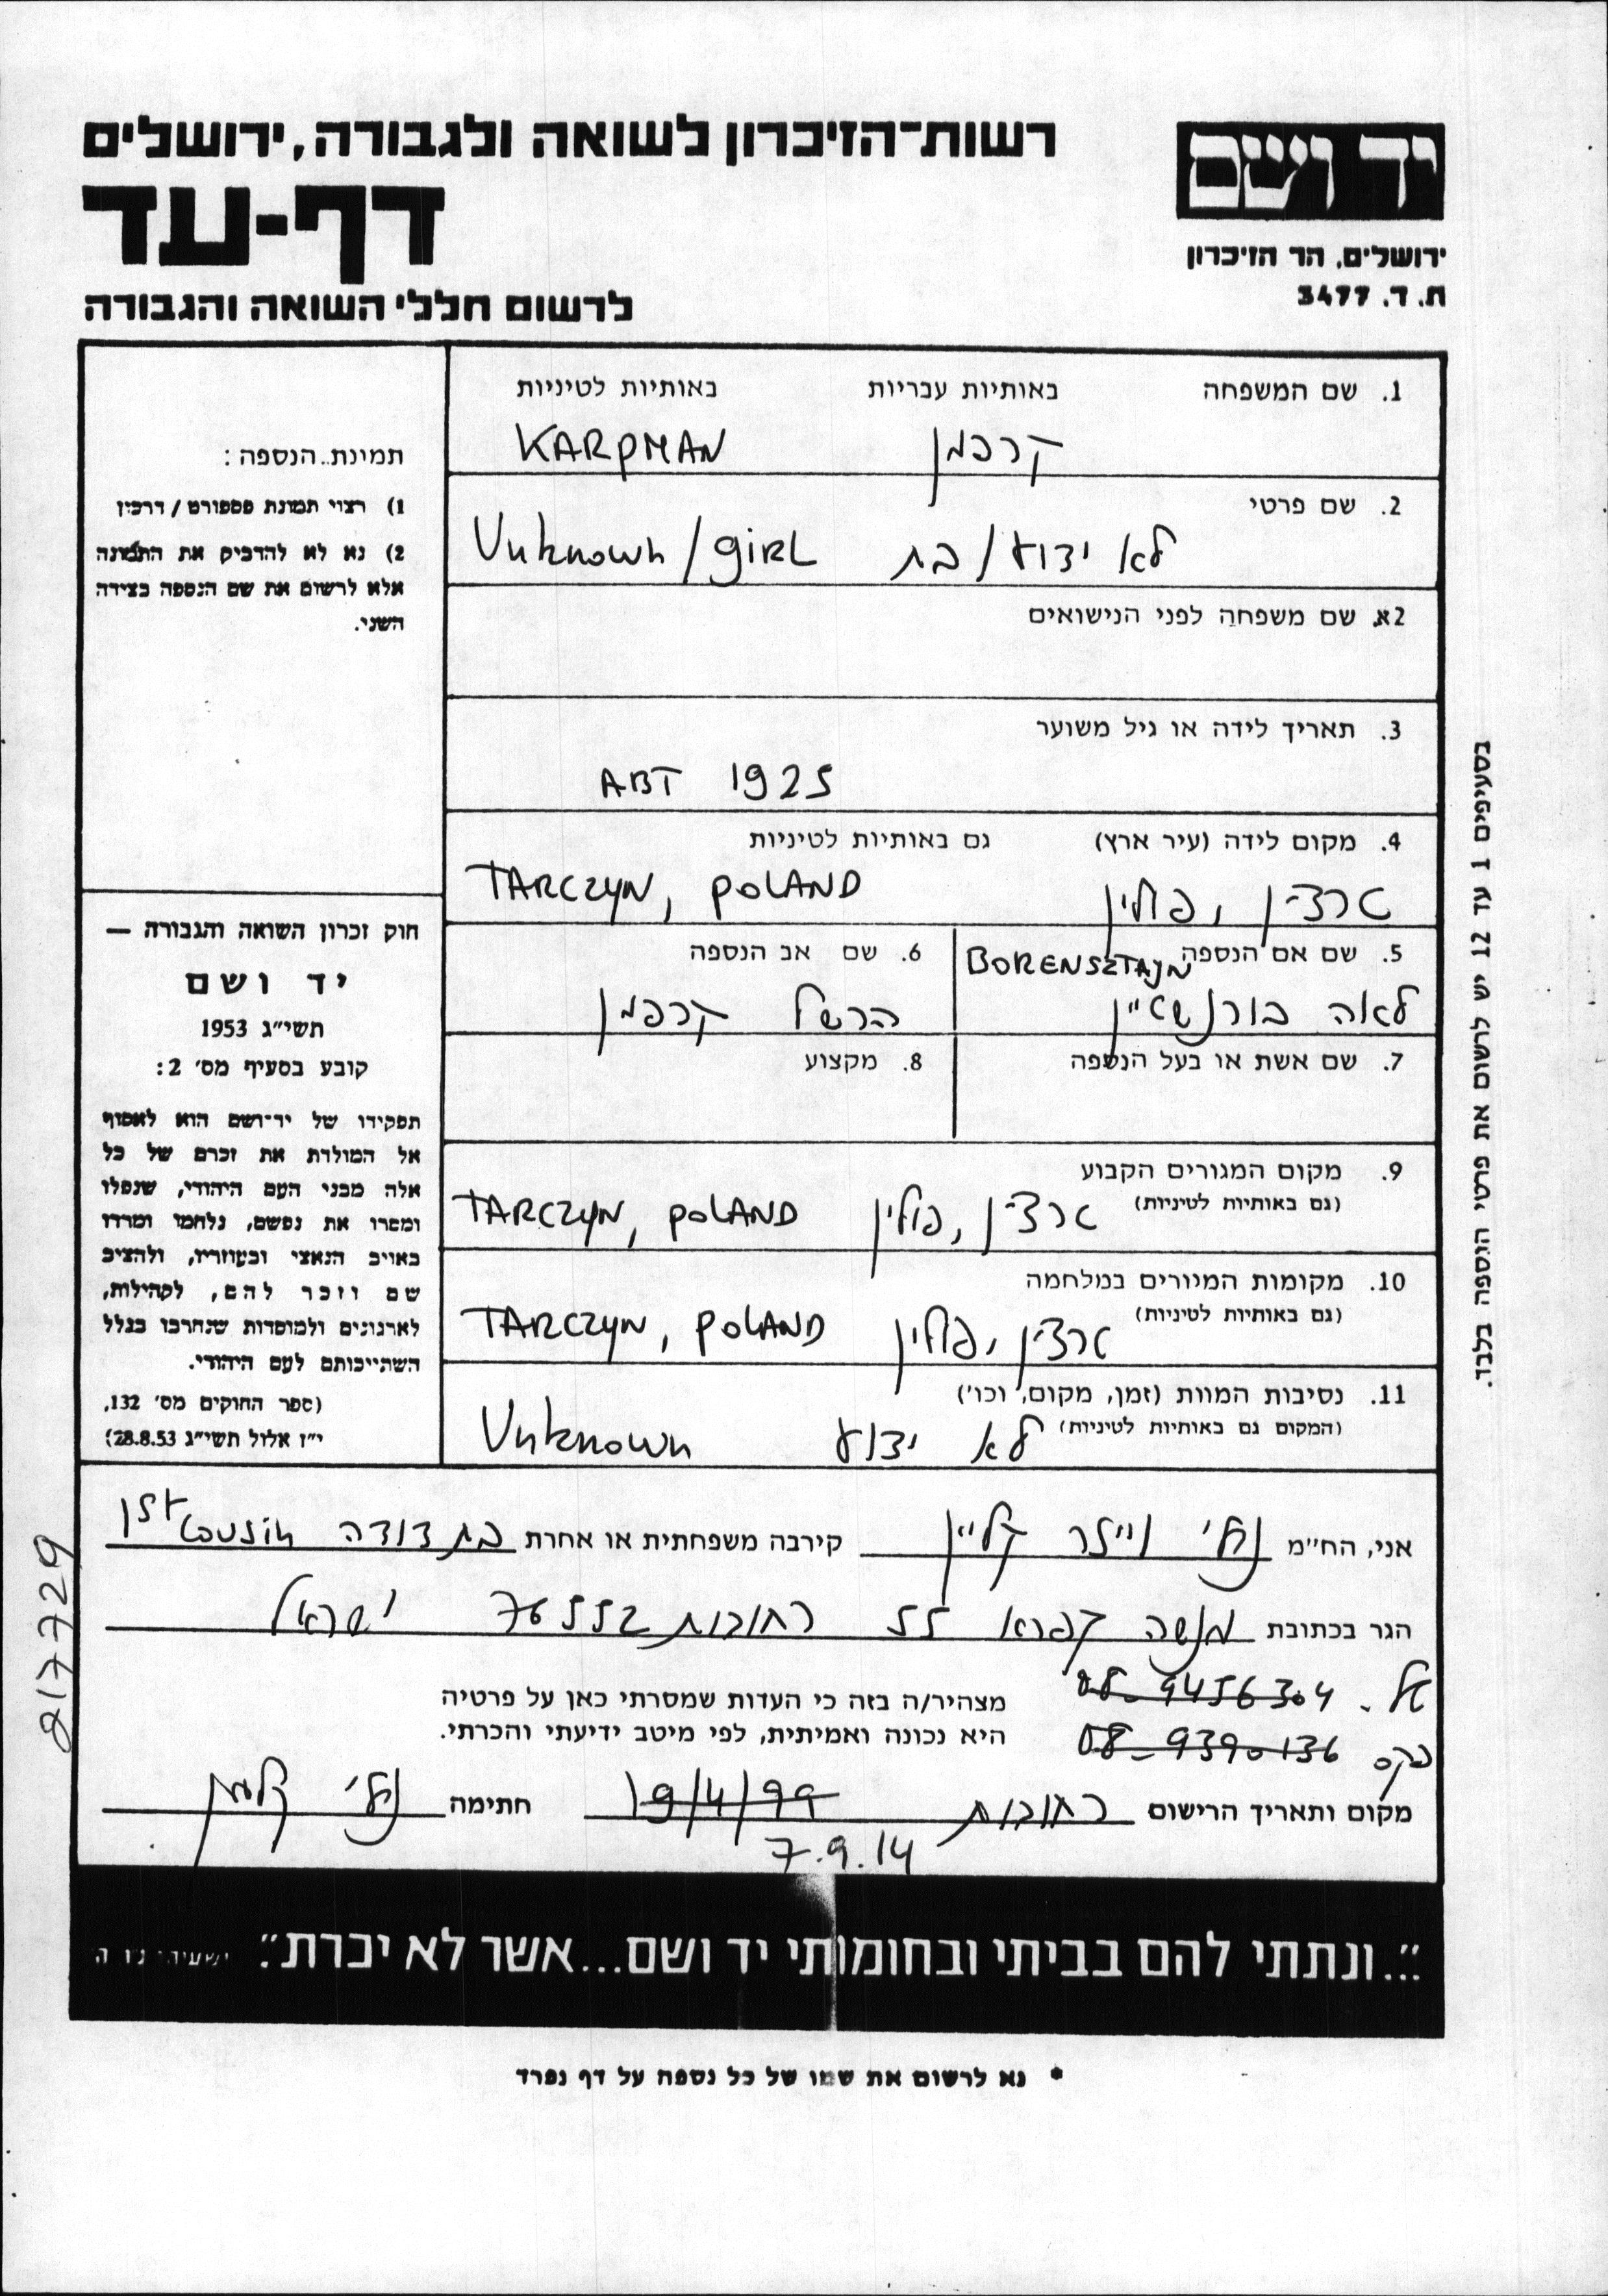 רשות־הזיכרון לשואה ולגבורה, ירושלים
דף-עד
לרשום חללי השואה והגבורה
יד ושם
ירושלים, הר הזיכרון
ת. ד. 3477
1. שם המשפחה באותיות עבריות באותיות לטיניות
קרפמן KARPMAN
2. שם פרטי
לא ידוע/בת Unknown/GIRL
2א. שם משפחה לפני הנישואים
3. תאריך לידה או גיל משוער
ABT 1925
4. מקום לידה (עיר ארץ) גם באותיות לטיניות
טרצ'ין, פולין TARCZYN, POLAND
5. שם אם הנספה BORENSZTAJN
לאה בורנשטיין
6. שם אב הנספה
הרשל קרפמן
7. שם אשת או בעל הנספה
8. מקצוע
9. מקום המגורים הקבוע
(גם באותיות לטיניות) טרצ'ין, פולין TARCZYN, POLAND
10. מקומות המגורים במלחמה
(גם באותיות לטיניות) טרצ'ין, פולין TARCZYN, POLAND
11. נסיבות המוות (זמן, מקום, וכו')
(המקום גם באותיות לטיניות) לא ידוע Unknown
תמונת הנספה:
1) רצוי תמונת פספורט / דרכון
2) נא לא להדביק את התמונה
אלא לרשום את שם הנספה בצידה
השני.
חוק זכרון השואה והגבורה —
יד ושם
תשי״ג 1953
קובע בסעיף מס׳ 2:
תפקידו של יד־ושם הוא לאסוף
אל המולדת את זכרם של כל
אלה מבני העם היהודי, שנפלו
ומסרו את נפשם, נלחמו ומרדו
באויב הנאצי ובעוזריו, ולהציב
שם וזכר להם, לקהילות,
לארגונים ולמוסדות שנחרבו בגלל
השתייכותם לעם היהודי.
(ספר החוקים מס׳ 132,
י״ז אלול תשי״ג 28.8.53)
בסעיפים 1 עד 12 יש לרשום את פרטי הניספה בלבד.
אני, הח״מ נלי וייזר קליין קירבה משפחתית או אחרת בת דודה 1st cousin
הגר בכתובת מנשה קפרא 55 רחובות 76552 ישראל
טל. 08-9456304
פקס 08-9390136
מצהיר/ה בזה כי העדות שמסרתי כאן על פרטיה
היא נכונה ואמיתית, לפי מיטב ידיעתי והכרתי.
מקום ותאריך הרישום רחובות 19/4/99 חתימה נלי
7.9.14
217729
״...ונתתי להם בביתי ובחומותי יד ושם...אשר לא יכרת״. ישעיהו נ״ו ה
* נא לרשום את שמו של כל נספה על דף נפרד